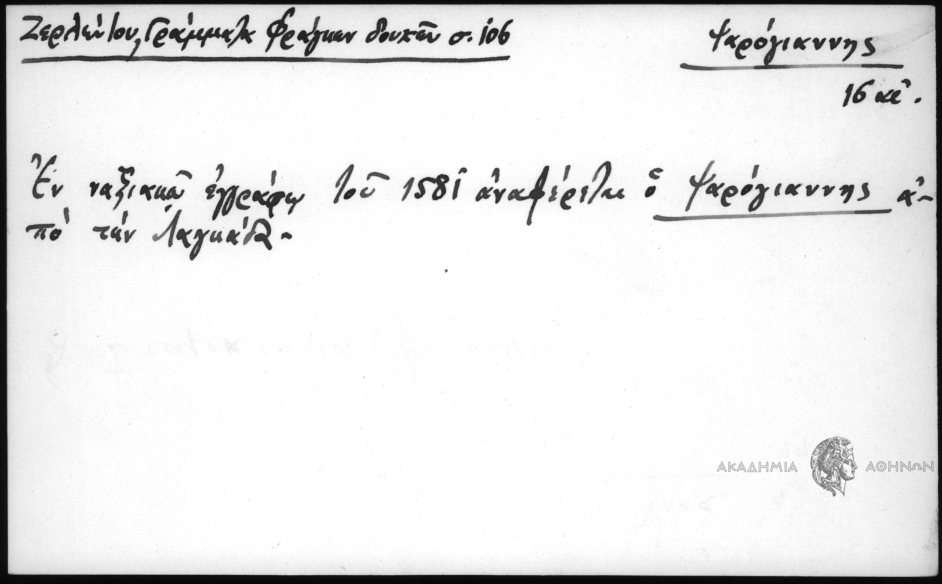 Ζερλέντου, Γράμματα Φράγκων δουκῶν σ. 106
Ψαρόγιαννης
16 αἰ.
Ἐν ναξιακῷ ἐγγράφῳ τοῦ 1581 ἀναφέρεται ὁ Ψαρόγιαννης ἀ-
πὸ τὴν Λαγκάδα.
ΑΚΑΔΗΜΙΑ ΑΘΗΝΩΝ